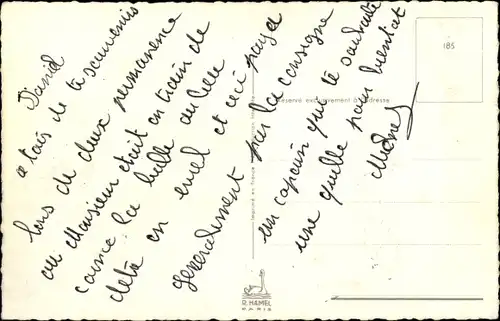 Daniel
a tais de ta souvenis
lors de deux permanence
ou Monsieur etait en train de
coince la bulle au lieu
dete en
et ceci paye
generalement par la consigne
un copain qui te souhaite
une quille pour bientot
185
Réservé exclusivement à l'adresse
Imprimé en France
R. HAMEL
PARIS